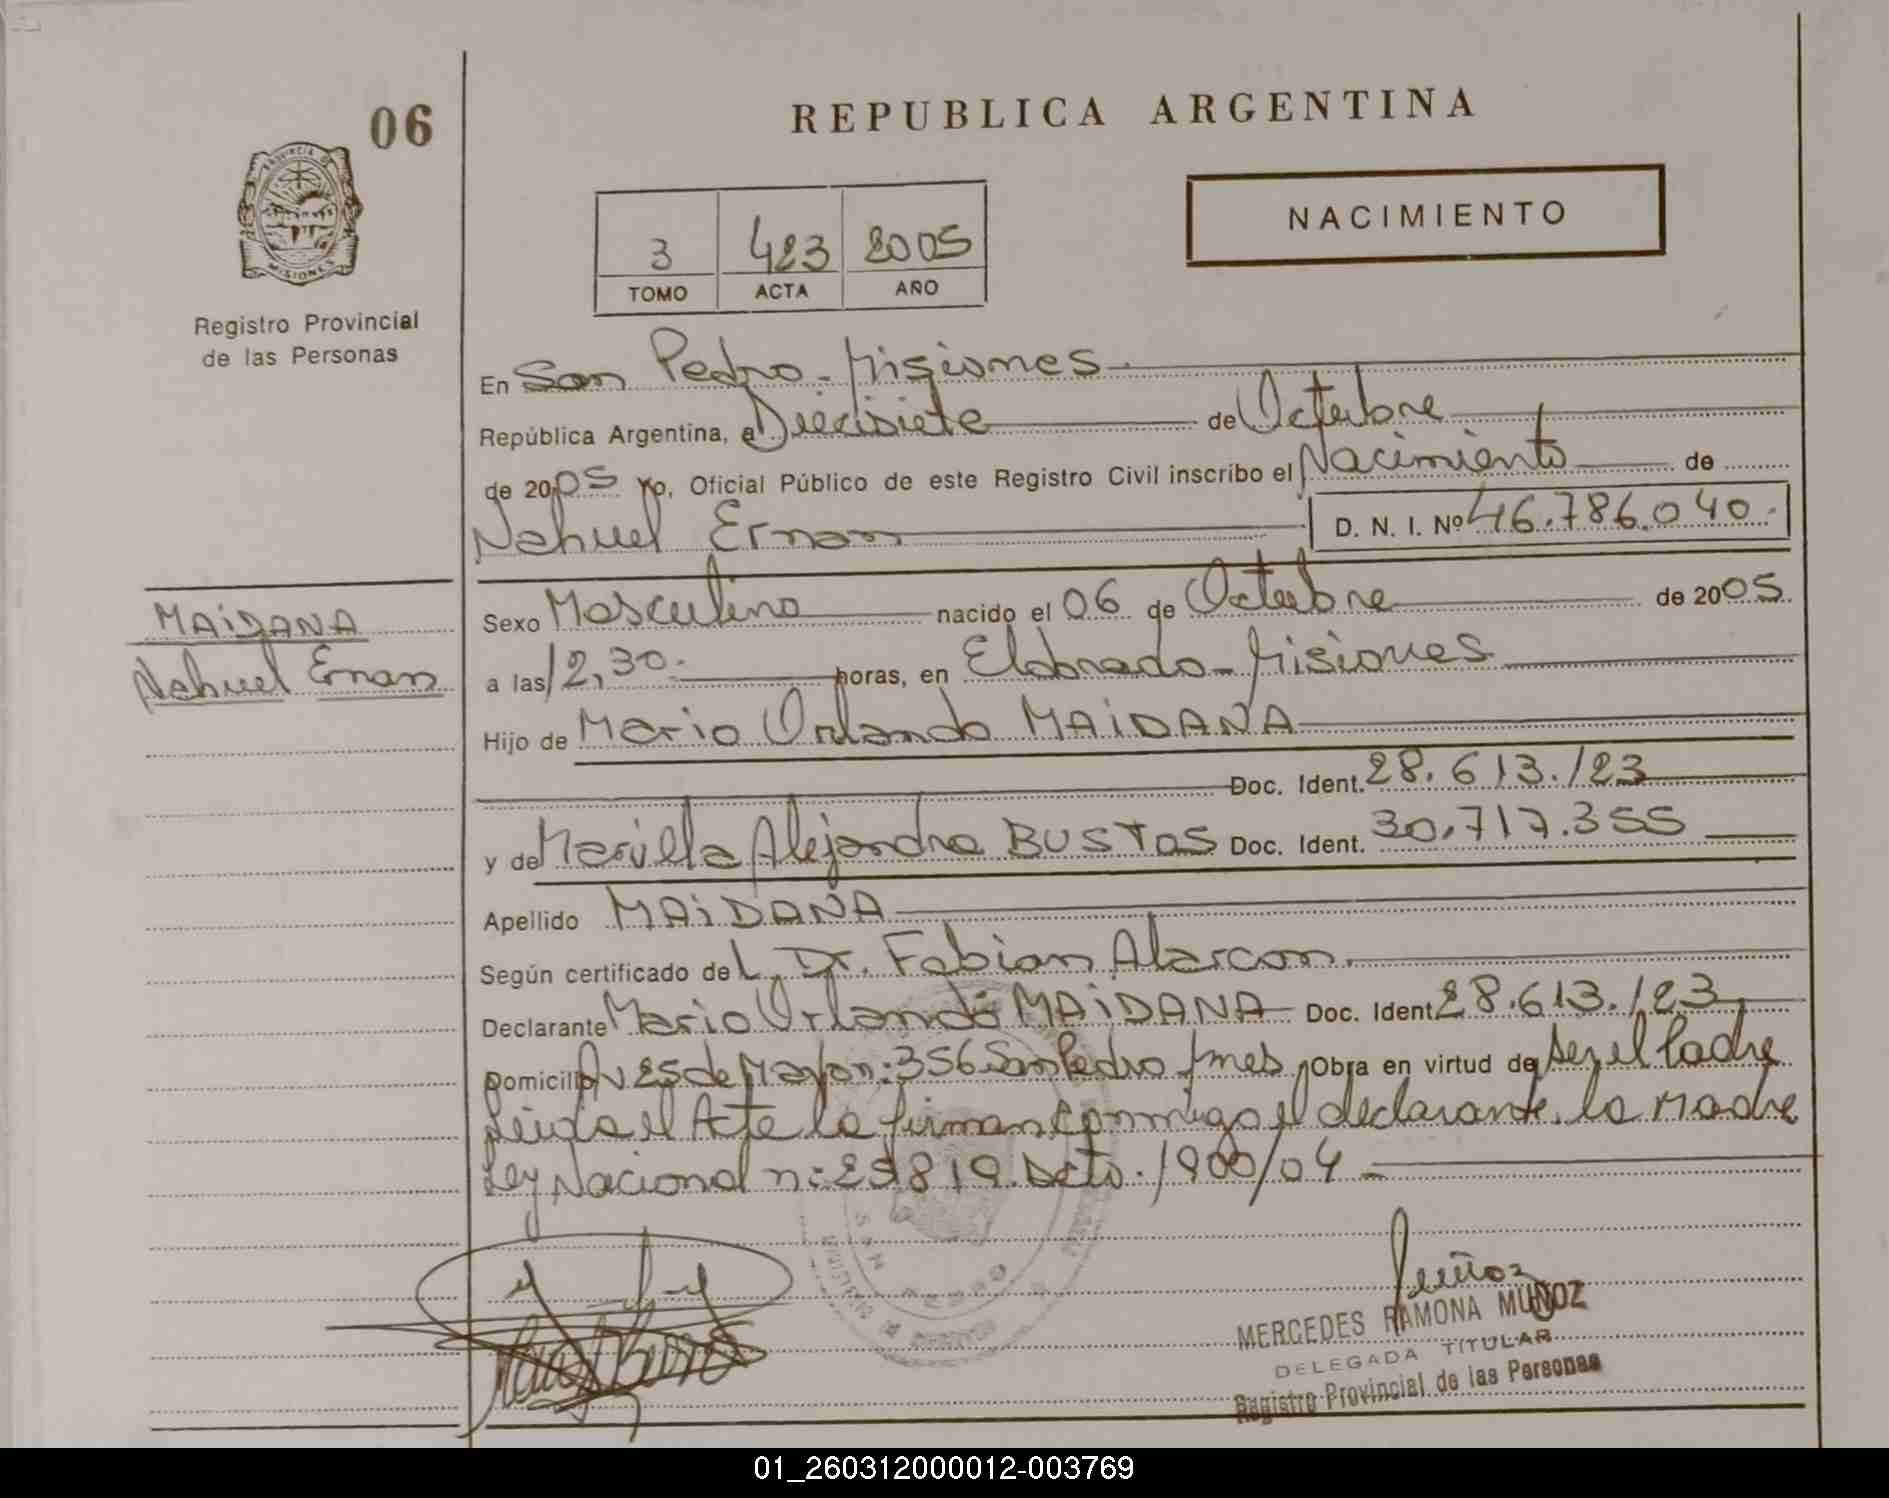 06
REPUBLICA ARGENTINA
PROVINCIA DE
MISIONES
Registro Provincial
de las Personas
3 423 2005
TOMO ACTA AÑO
NACIMIENTO
En San Pedro - Misiones
República Argentina, a Diecisiete de Octubre
de 2005 Yo, Oficial Público de este Registro Civil inscribo el Nacimiento de
Nahuel Ernan D. N. I. Nº 46.786.040.
MAiDANA
Nahuel Ernan
Sexo Masculino nacido el 06 de Octubre de 2005.
a las 12,30. horas, en Eldorado - Misiones
Hijo de Mario Orlando MAiDANA
Doc. Ident. 28.613.123
y de Mariella Alejandra BUSTOS Doc. Ident. 30.717.355
Apellido MAiDANA
Según certificado del Dr. Fabian Alarcon.
Declarante Mario Orlando MAiDANA Doc. Ident. 28.613.123
Domicilio Av 25 de Mayo n: 356 San Pedro Mnes Obra en virtud de ser el Padre
Leida el Acta la firman conmigo el declarante. la Madre
Ley Nacional n: 25819. Dcto. 1900/04 -
Muñoz
MERCEDES RAMONA MUÑOZ
DELEGADA TITULAR
Registro Provincial de las Personas
SAN PEDRO
01_260312000012-003769